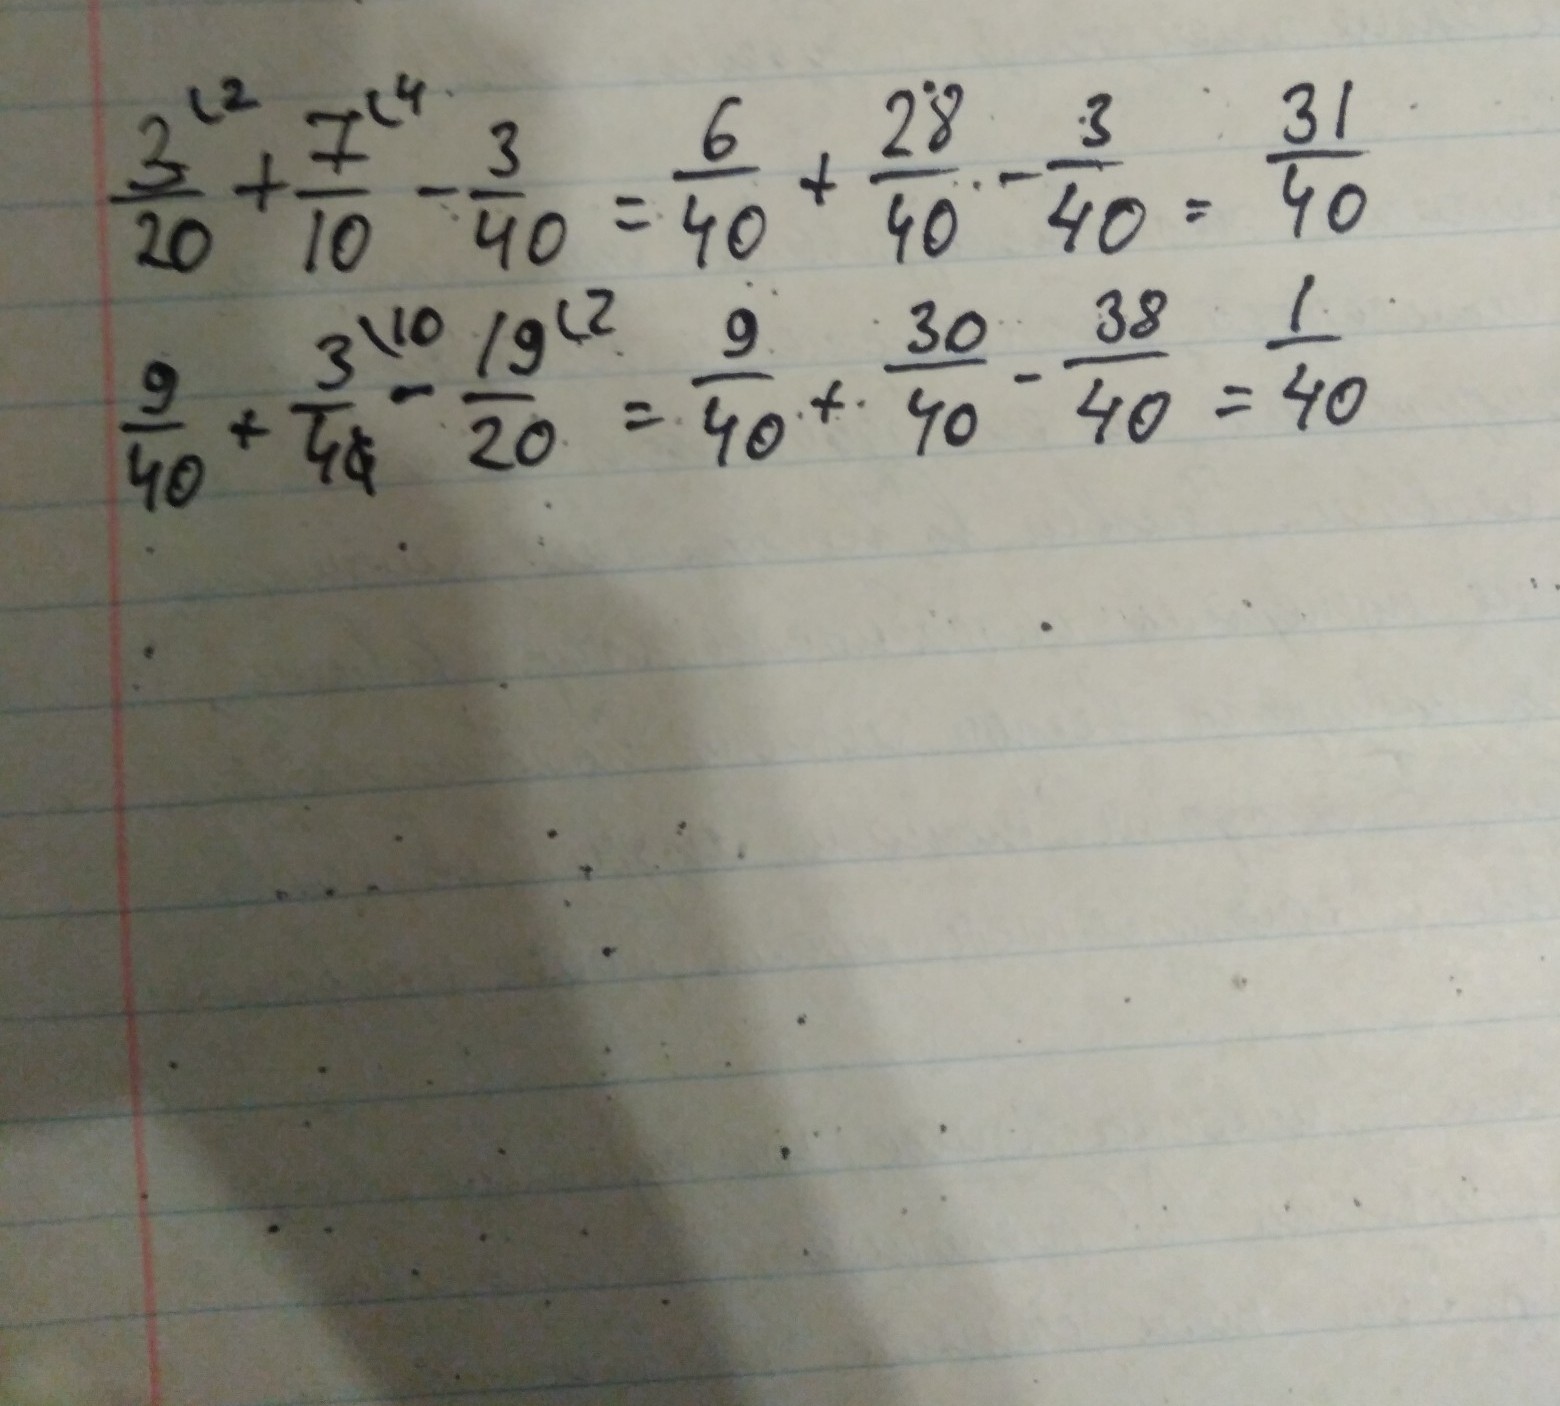 3/20 \2 + 7/10 \4 - 3/40 = 6/40 + 28/40 - 3/40 = 31/40
9/40 + 3/4 \10 - 19/20 \2 = 9/40 + 30/40 - 38/40 = 1/40